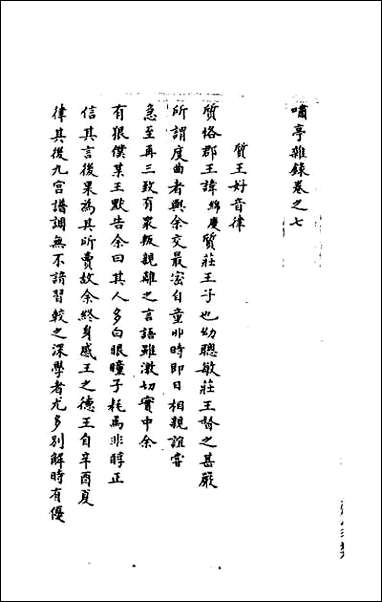 嘯亭雜錄卷之七
質王好音律
質恪郡王諱綿慶質莊王子也幼聰敏莊王督之甚嚴
所謂度曲者與余交最密自童丱時即日相親誼嘗
急至再三致有衆叛親離之言語雖激切實中余
有狠僕某王默告余曰其人多白眼瞳子耗焉非醇正
信其言後果為其所賣故余終身感王之德王自辛酉夏
律其後九宮譜調無不諳習較之深學者尤多別解時有優